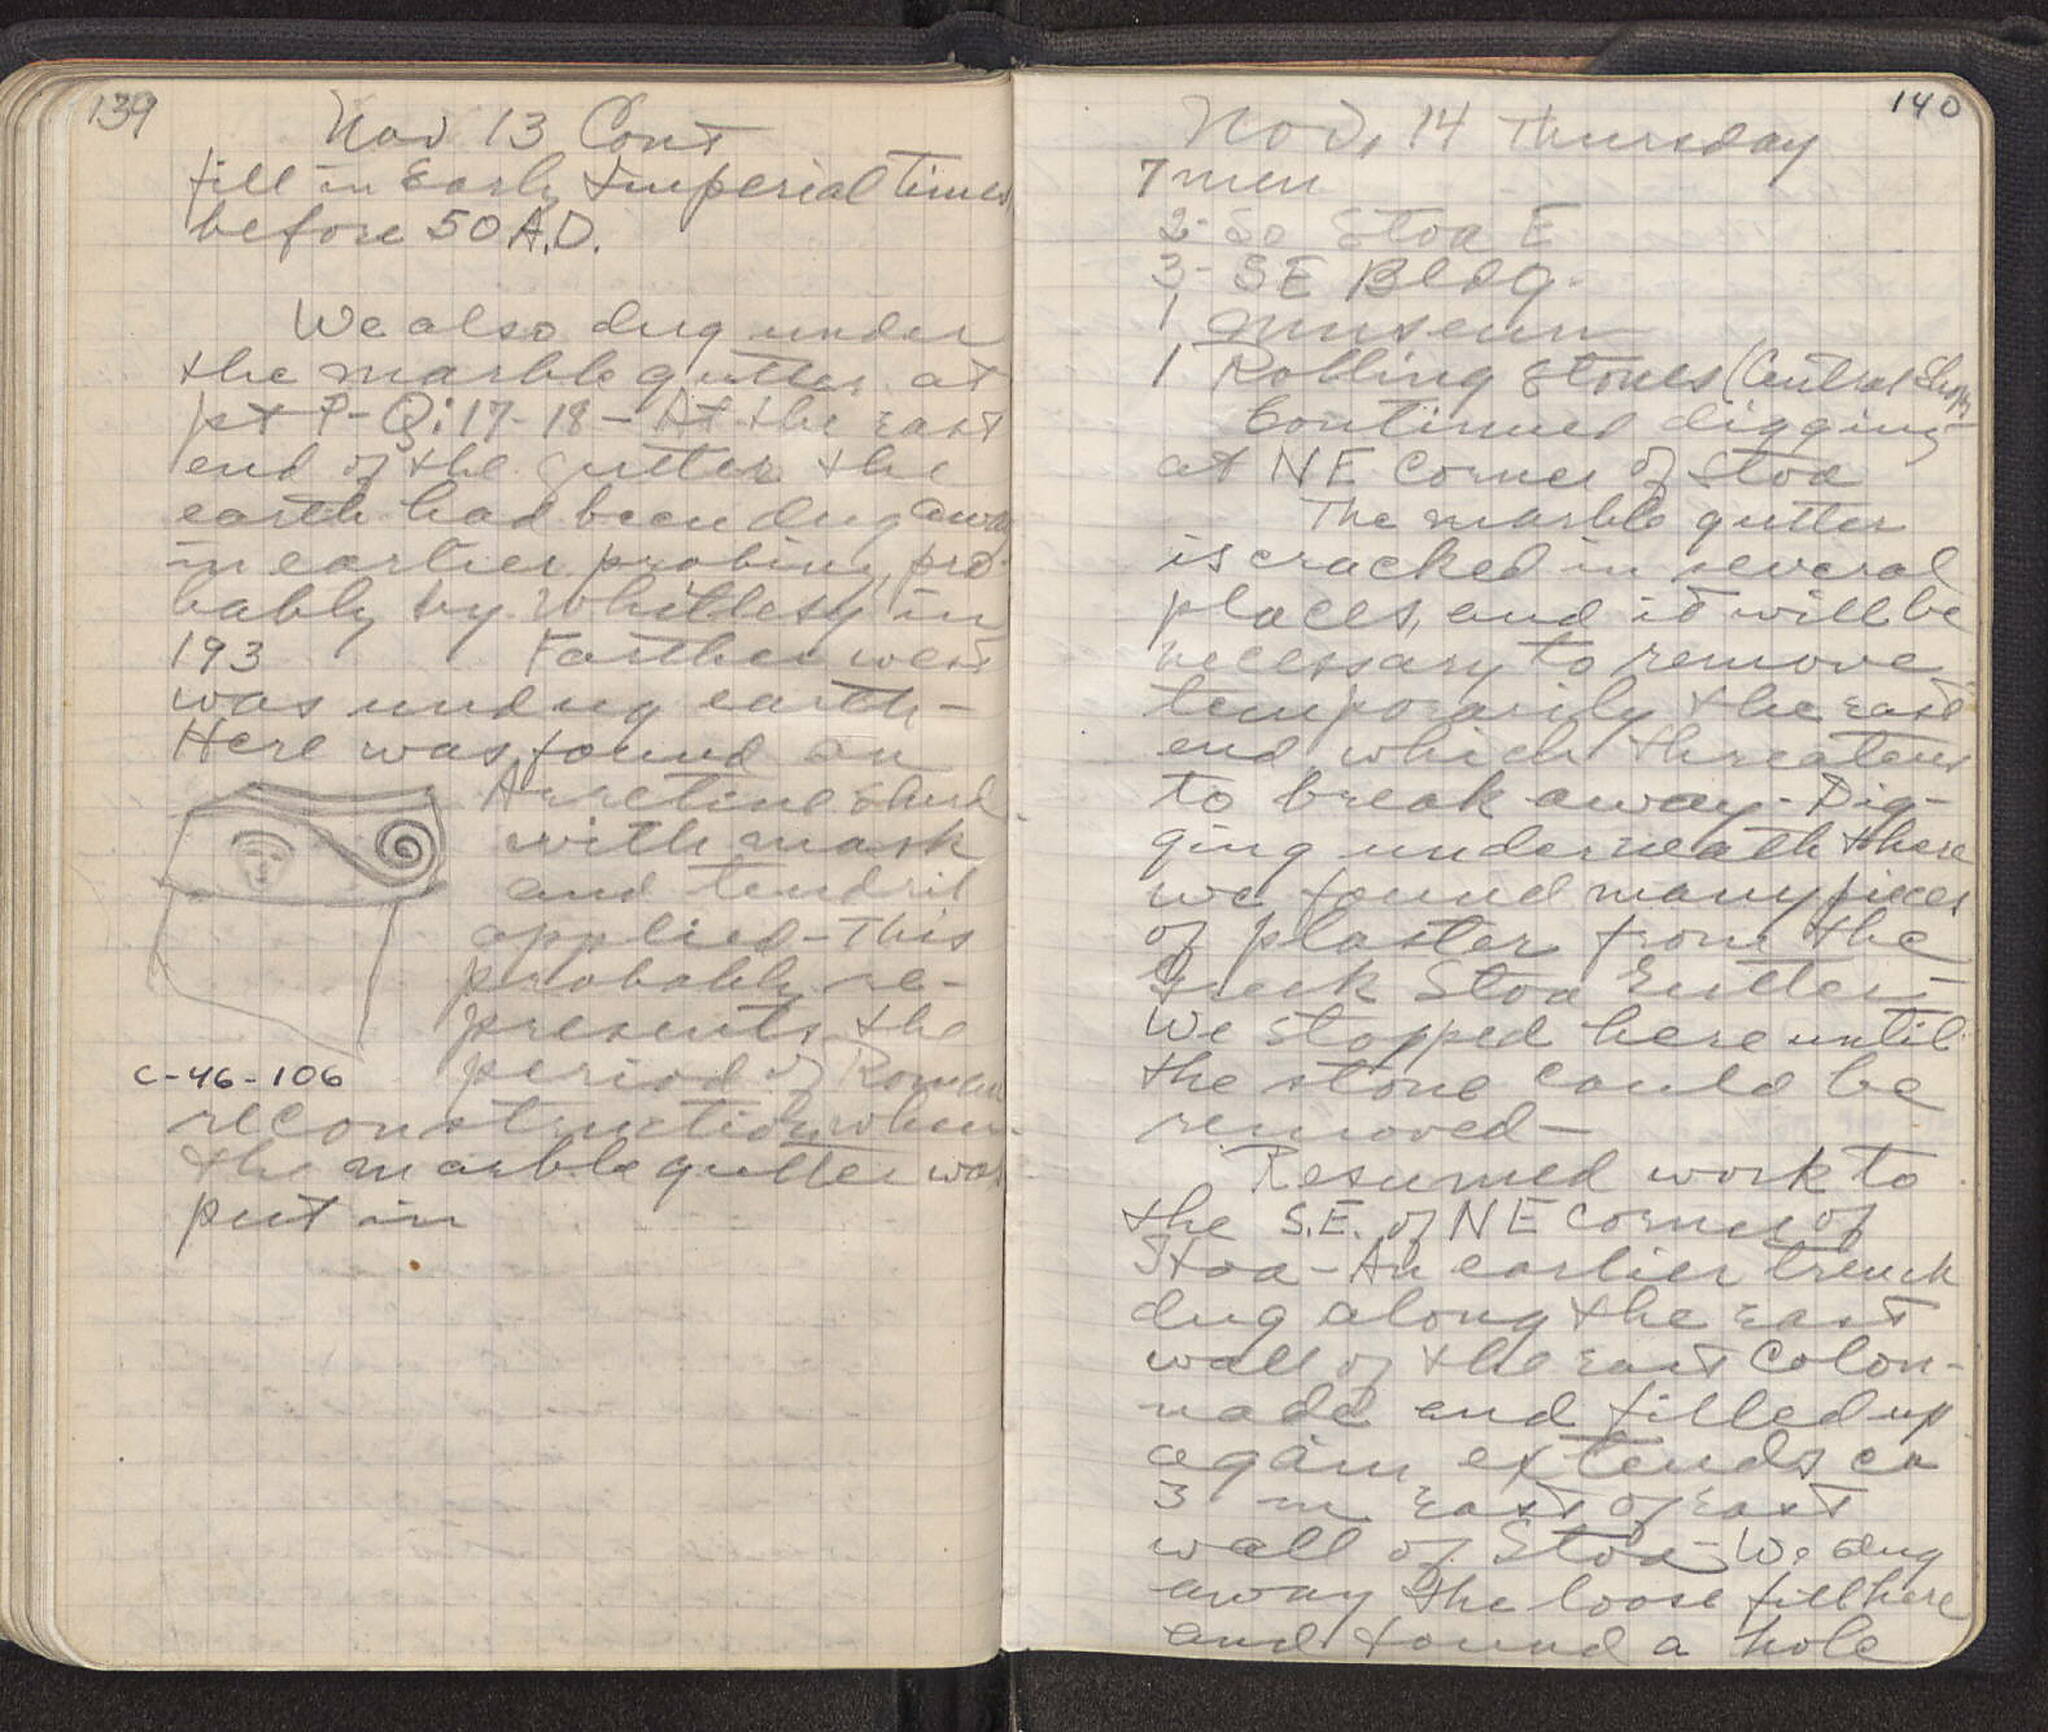 139
Nov 13 Cont
fill in Early Imperial times
before 50 A.D.
We also dug under
the marble gutter at
pt P-Q:17-18 - At the east
end of the gutter the
earth had been dug away
in earlier probing, pro-
bably by Whittlesy in
193 Farther west
was undug earth -
Here was found an
Arretine sherd
with mask
and tendril
applied - This
probably re-
presents the
period of Roman
C-46-106
reconstruction when
the marble gutter was
put in
140
Nov, 14 Thursday
7 men
2 - So Stoa E
3 - SE Bldg.
1 museum
1 Rolling stones (Central Shops)
Continued digging
at NE Corner of Stoa
The marble gutter
is cracked in several
places, and it will be
necessary to remove
temporarily the east
end which threatens
to break away - Dig-
ging underneath there
we found many pieces
of plaster from the
Greek Stoa Gutter -
We stopped here until
the stone could be
removed -
Resumed work to
the S.E. of NE corner of
Stoa - An earlier trench
dug along the east
wall of the east colon-
nade and filled up
again extends ca
3 m east of east
wall of Stoa - We dug
away the loose fill here
and found a hole